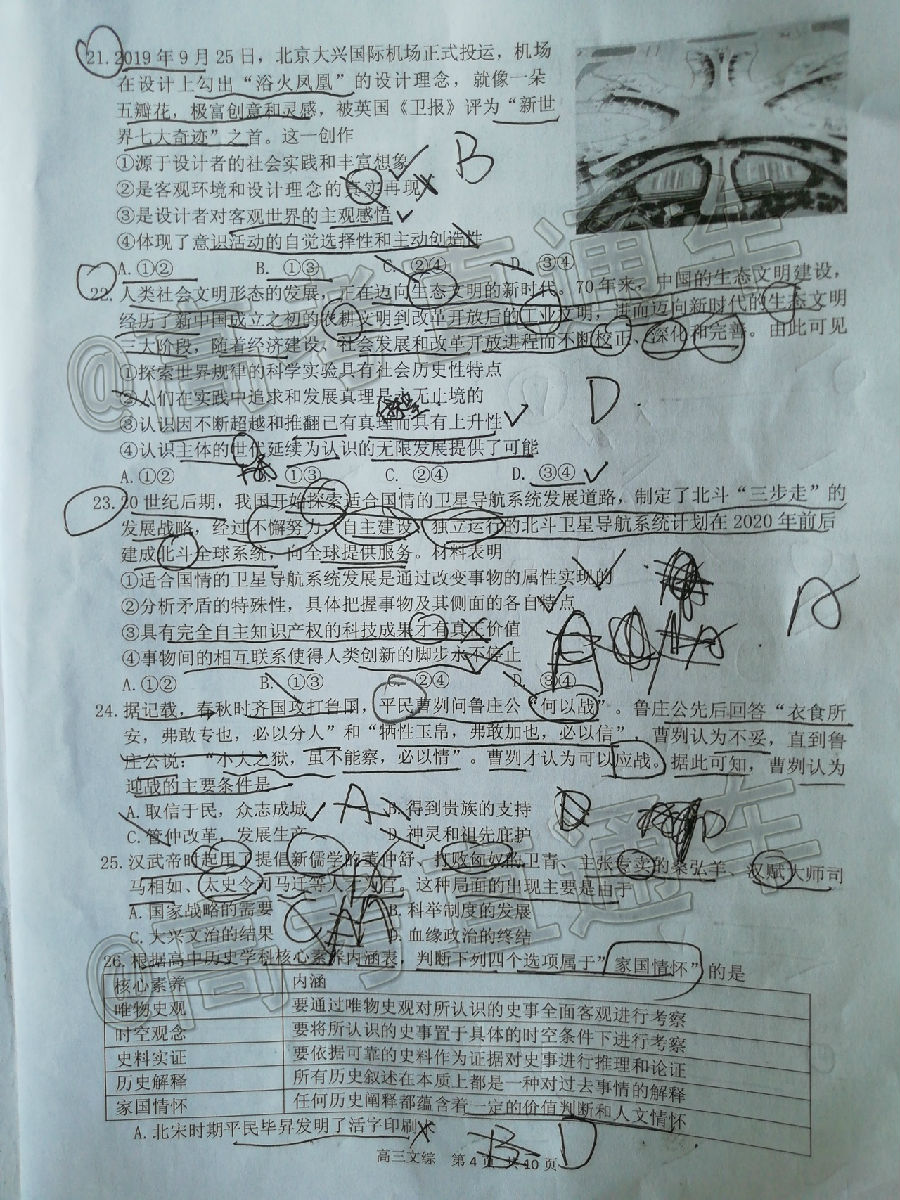 21. 2019 年 9 月 25 日，北京大兴国际机场正式投运，机场
在设计上勾出“浴火凤凰”的设计理念，就像一朵
五瓣花，极富创意和灵感，被英国《卫报》评为“新世
界七大奇迹”之首。这一创作
①源于设计者的社会实践和丰富想象
B
②是客观环境和设计理念的真实再现
③是设计者对客观世界的主观感情
④体现了意识活动的自觉选择性和主动创造性
A. ①② B. ①③ C. ②④ D. ③④
22. 人类社会文明形态的发展，正在迈向生态文明的新时代。70 年来，中国的生态文明建设，
经历了新中国成立之初的农耕文明到改革开放后的工业文明，进而迈向新时代的生态文明
三大阶段，随着经济建设、社会发展和改革开放进程而不断校正、深化和完善。由此可见
①探索世界规律的科学实验具有社会历史性特点
②人们在实践中追求和发展真理是永无止境的
D
③认识因不断超越和推翻已有真理而具有上升性
④认识主体的世代延续为认识的无限发展提供了可能
A. ①② B. ①③ C. ②④ D. ③④
23. 20 世纪后期，我国开始探索适合国情的卫星导航系统发展道路，制定了北斗“三步走”的
发展战略，经过不懈努力，自主建设、独立运行的北斗卫星导航系统计划在 2020 年前后
建成北斗全球系统，向全球提供服务。材料表明
①适合国情的卫星导航系统发展是通过改变事物的属性实现的
②分析矛盾的特殊性，具体把握事物及其侧面的各自特点
③具有完全自主知识产权的科技成果才有真正价值
④事物间的相互联系使得人类创新的脚步永不停止
A. ①② B. ①③ C. ②④ D. ③④
24. 据记载，春秋时齐国攻打鲁国，平民曹刿问鲁庄公“何以战”。鲁庄公先后回答“衣食所
安，弗敢专也，必以分人”和“牺牲玉帛，弗敢加也，必以信”，曹刿认为不妥，直到鲁
庄公说：“小大之狱，虽不能察，必以情”。曹刿才认为可以应战。据此可知，曹刿认为
迎战的主要条件是
A. 取信于民，众志成城 A B. 得到贵族的支持
C. 管仲改革，发展生产 D. 神灵和祖先庇护
25. 汉武帝时起用了提倡新儒学的董仲舒、打败匈奴的卫青、主张专卖的桑弘羊、汉赋大师司
马相如、太史令司马迁等人才为官。这种局面的出现主要是由于
A. 国家战略的需要 B. 科举制度的发展
C. 大兴文治的结果 D. 血缘政治的终结
26. 根据高中历史学科核心素养内涵表，判断下列四个选项属于”家国情怀”的是
核心素养 内涵
唯物史观 要通过唯物史观对所认识的史事全面客观进行考察
时空观念 要将所认识的史事置于具体的时空条件下进行考察
史料实证 要依据可靠的史料作为证据对史事进行推理和论证
历史解释 所有历史叙述在本质上都是一种对过去事情的解释
家国情怀 任何历史阐释都蕴含着一定的价值判断和人文情怀
A. 北宋时期平民毕昇发明了活字印刷术
B D
高三文综 第 4 页 共 10 页
@高考直通车
@高考直通车